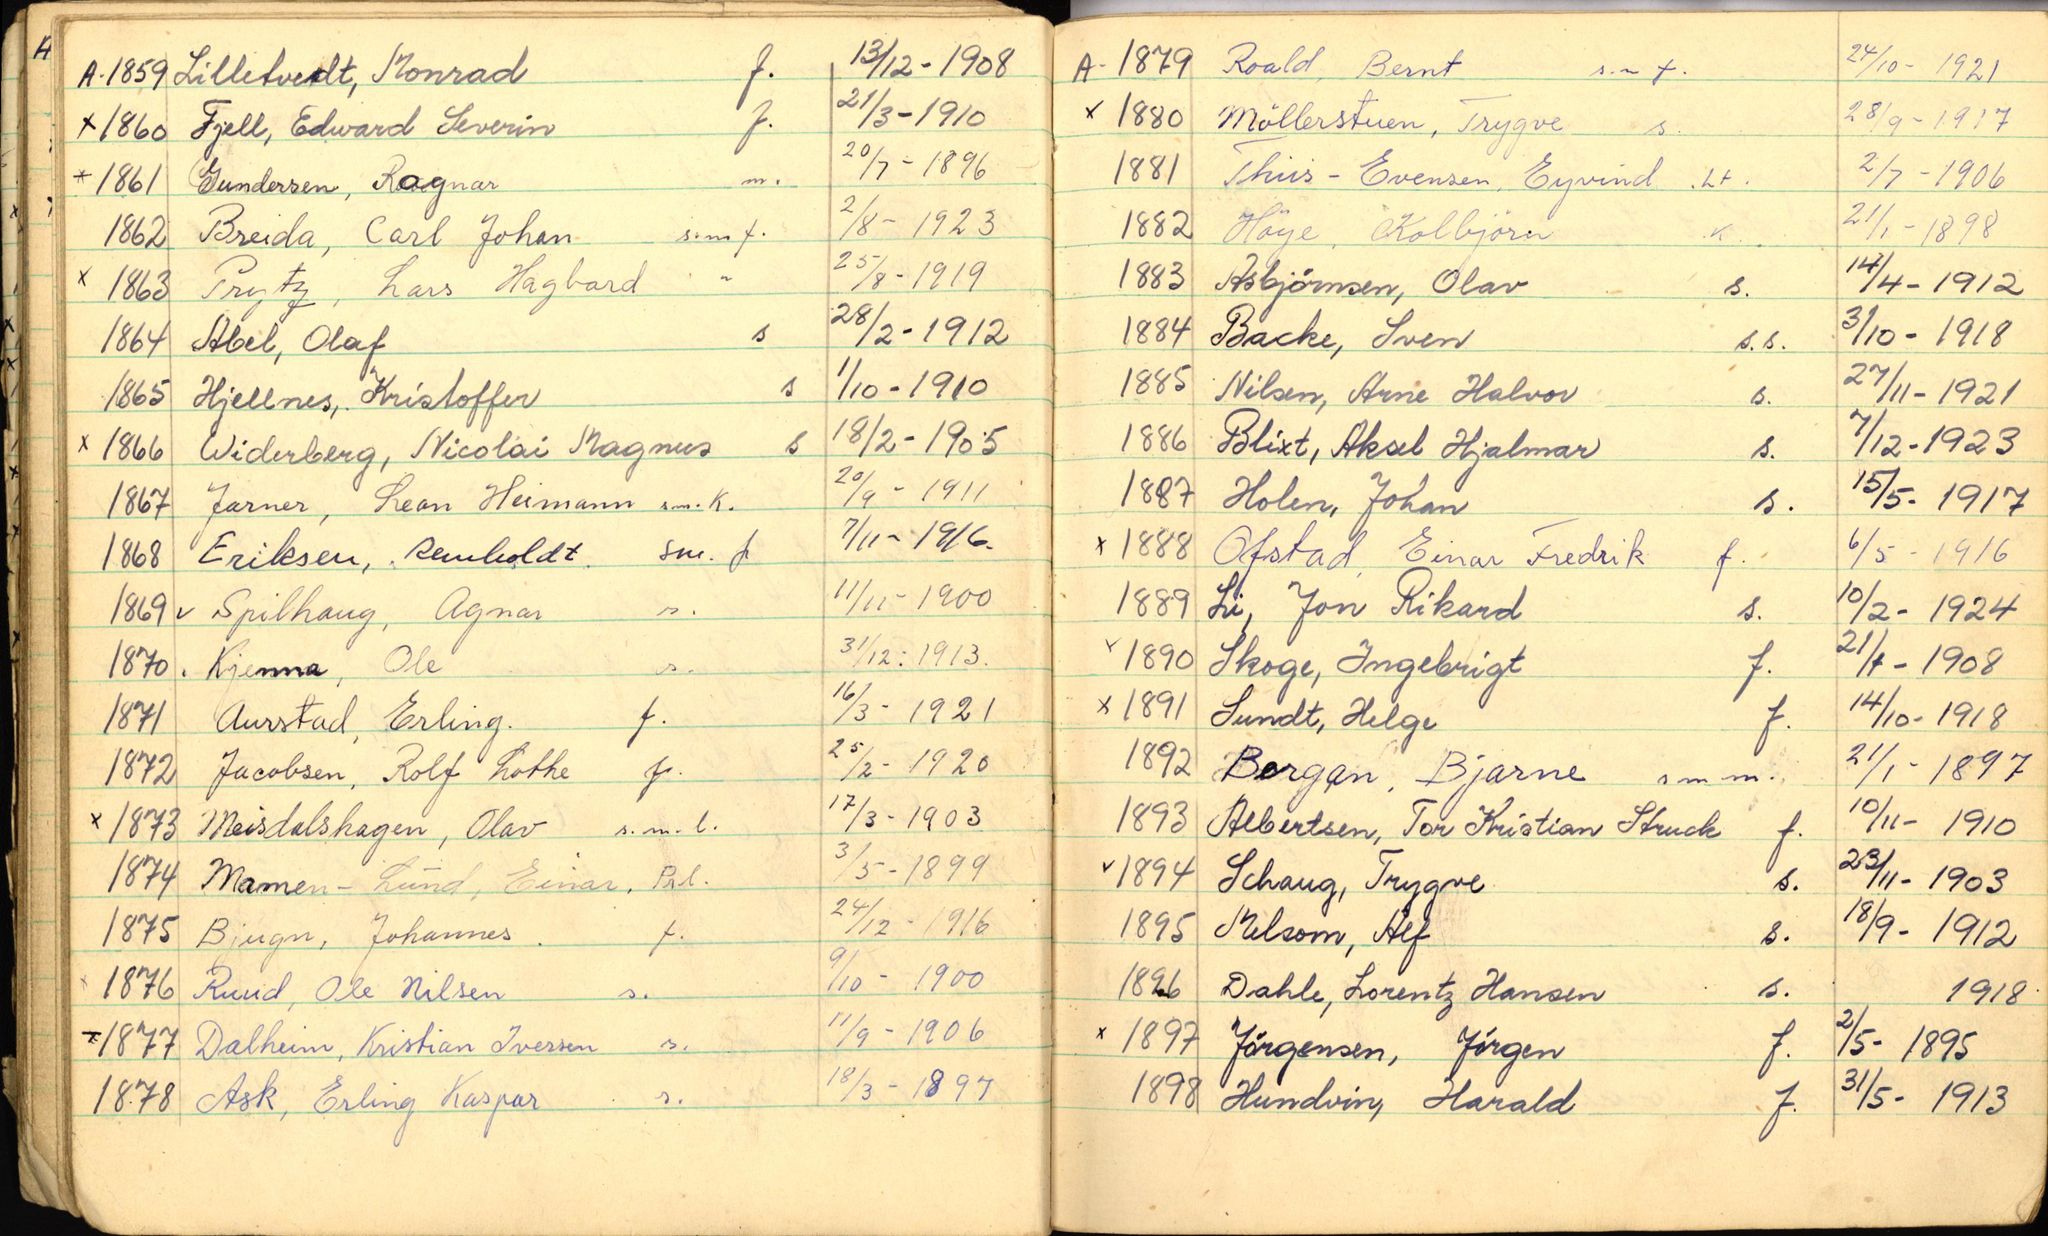 A
A. 1859 Lilletvedt, Konrad f. 13/12 - 1908
x 1860 Fjell, Edward Severin f. 21/3 - 1910
x 1861 Gundersen, Ragnar m. 20/7 - 1896
1862 Breida, Carl Johan s.m f. 2/8 - 1923
x 1863 Prytz, Lars Hagbard " 25/8 - 1919
1864 Abel, Olaf s 28/2 - 1912
1865 Hjellnes, Kristoffer s 1/10 - 1910
x 1866 Widerberg, Nicolai Magnus s 18/2 - 1905
1867 Jarner, Leon Heimann s.m. K. 20/9 - 1911
1868 Eriksen, Reinholdt. sm. f 7/11 - 1916.
1869 v Spilhaug, Agnar s. 11/11 - 1900
1870. Kjenna, Ole s. 31/12: 1913.
1871 Aurstad, Erling. f. 16/3 - 1921
1872 Jacobsen, Rolf Lothe f. 25/2 - 1920
x 1873 Meisdalshagen, Olav s.m.l. 17/3 - 1903
1874 Mamen - Lund, Einar. Prl. 3/5 - 1899
1875 Bjugn, Johannes. f. 24/12 - 1916
x 1876 Ruud, Ole Nilsen s. 9/10 - 1900
x 1877 Dalheim, Kristian Iversen s. 11/9 - 1906
1878 Ask, Erling Kaspar s. 18/3 - 1897
A - 1879 Roald, Bernt s.m f. 24/10 - 1921
x 1880 Möllerstuen, Trygve s. 28/9 - 1917
1881 Thiis - Evensen, Eyvind. Lt. 2/7 - 1906
1882 Höye, Kolbjörn K. 21/1 - 1898
1883 Asbjörnsen, Olav s. 14/4 - 1912
1884 Backe, Sven s.s. 31/10 - 1918
1885 Nilsen, Arne Halvor s. 27/11 - 1921
1886 Blixt, Aksel Hjalmar s. 7/12 - 1923
1887 Holen, Johan s. 15/5 - 1917
x 1888 Ofstad, Einar Fredrik f. 6/5 - 1916
1889 Li, Jon Rikard s. 10/2 - 1924
v 1890 Skoge, Ingebrigt f. 21/7 - 1908
x 1891 Sundt, Helge f. 14/10 - 1918
1892 Bergan, Bjarne s m m. 21/1 - 1897
1893 Albertsen, Tor Kristian Struck f. 10/11 - 1910
v 1894 Schaug, Trygve s. 23/11 - 1903
1895 Melsom, Alf s. 18/9 - 1912
1896 Dahle, Lorentz Hansen s. 1918
x 1897 Jörgensen, Jörgen f. 2/5 - 1895
1898 Hundvin, Harald f. 31/5 - 1913